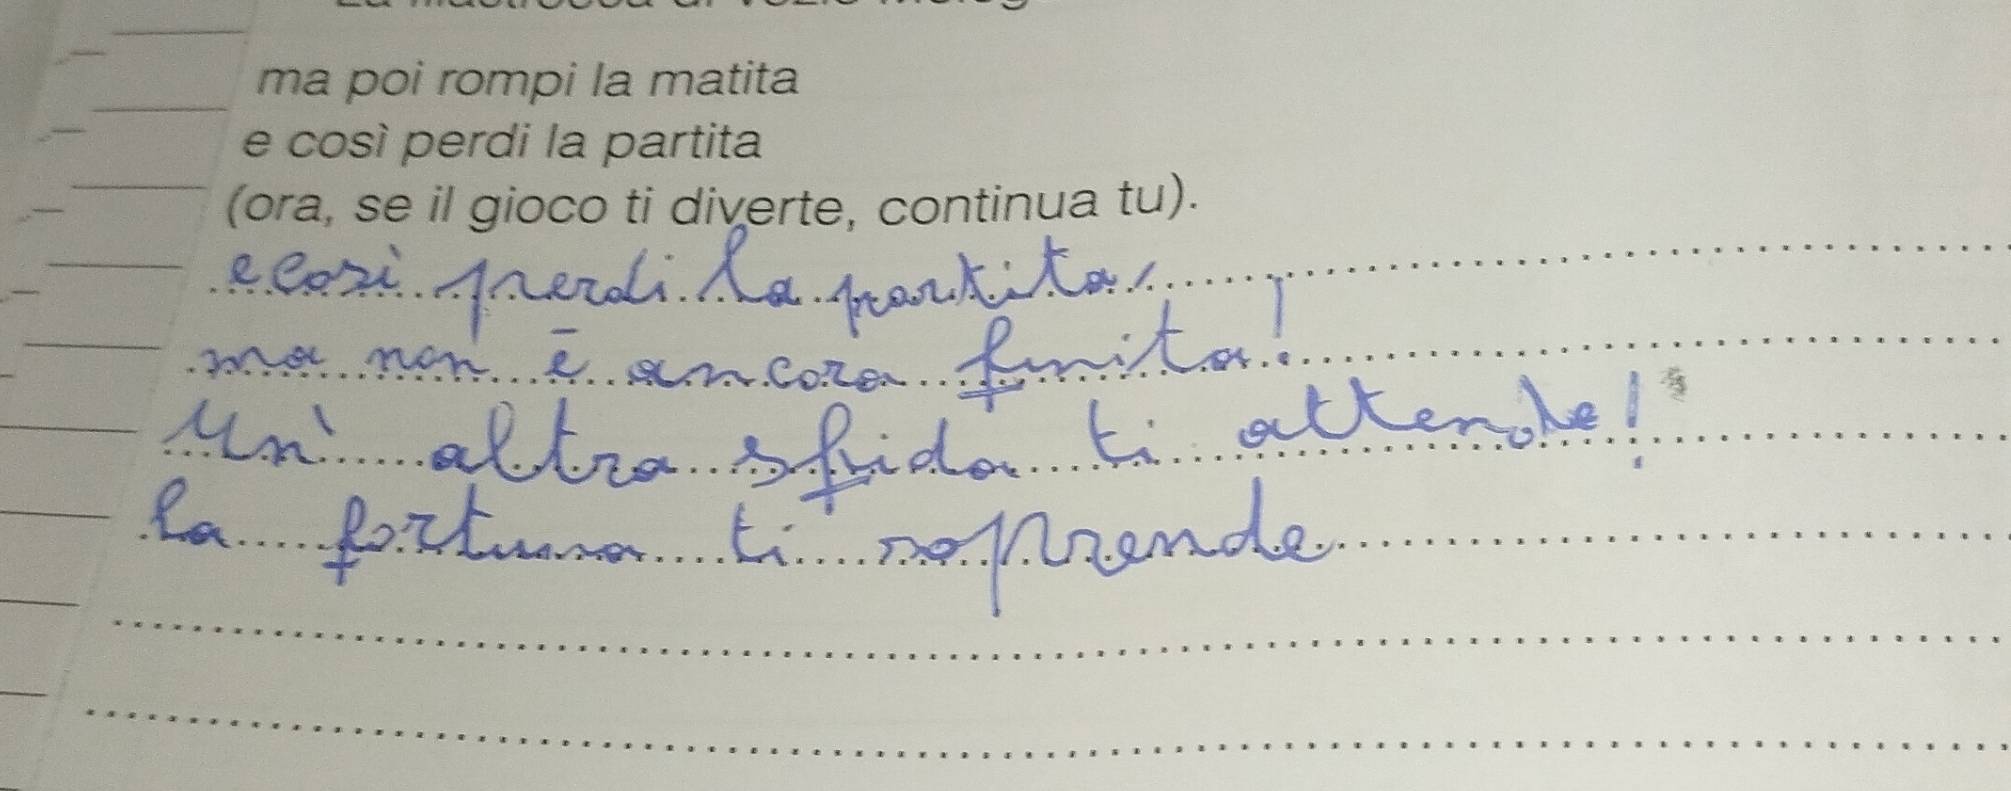 ma poi rompi la matita
e così perdi la partita
(ora, se il gioco ti diverte, continua tu).
e così perdi la partita,
ma non è ancora finita!
Un'altra sfida ti attende!
la fortuna ti soprende